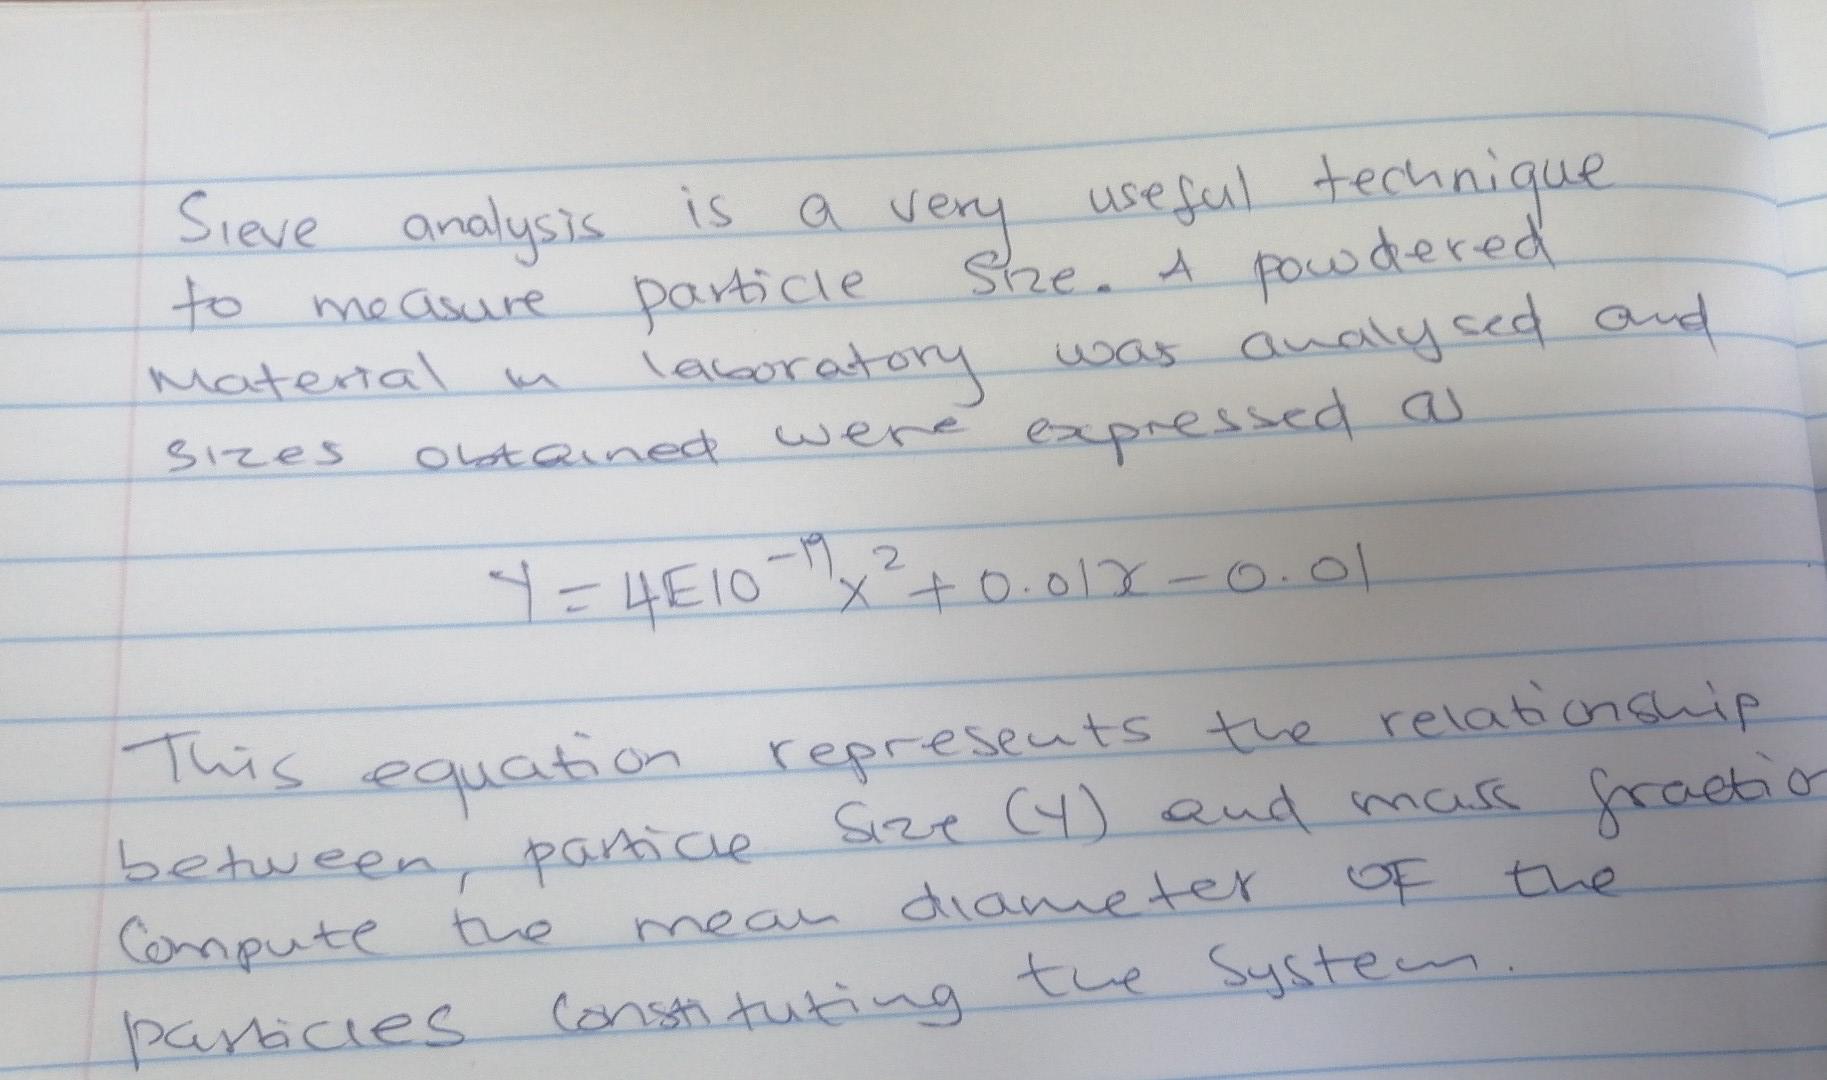 Sieve analysis is a very useful technique
to measure particle size. A powdered
Material in laboratory was analysed and
sizes obtained were expressed as
Y = 4E10⁻¹⁹x² + 0.01x - 0.01
This equation represents the relationship
between, particle size (Y) and mass fractio
Compute the mean diameter OF the
particles constituting the system.